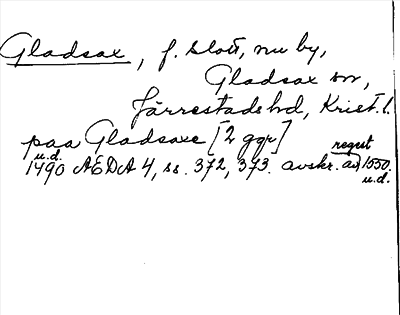 Gladsax, f. slott, nu by,
Gladsax sn,
Järrestads hd, Krist. l.
paa Gladsaxe [2 ggr]
u.d. regest
1490 AEDA 4, ss. 372, 373. avskr. av 1550.
u.d.